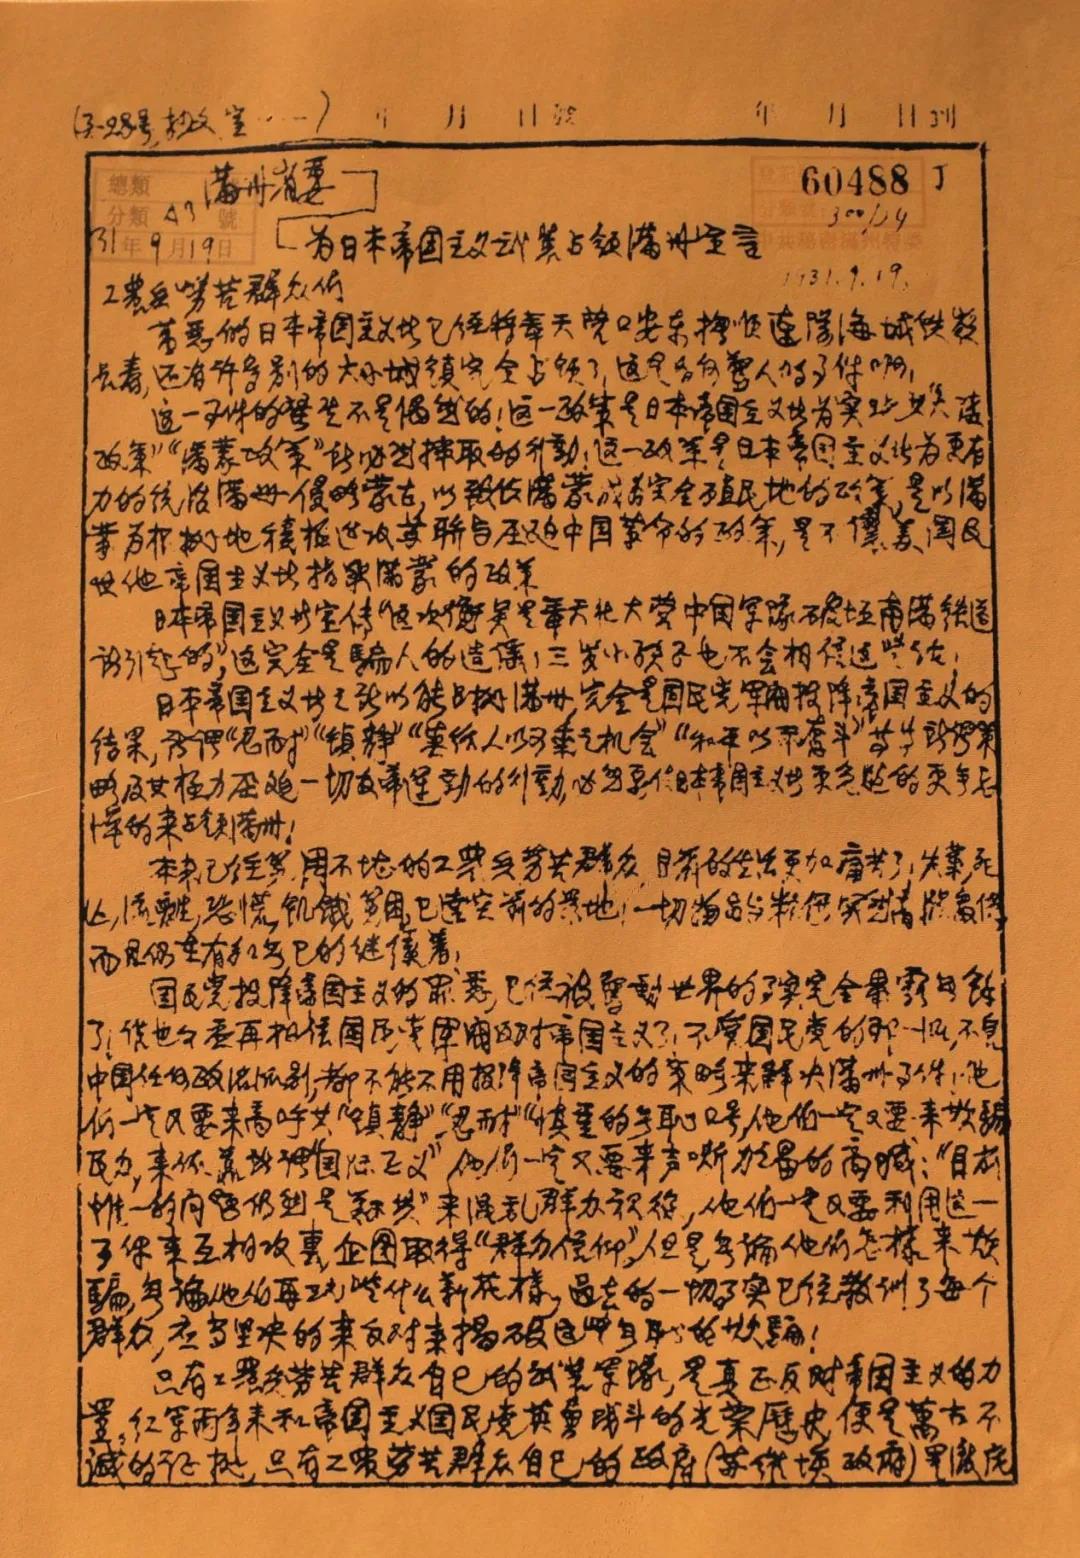 年 月 日
年 月 日到
總類
分類 A3 號
31年9月19日
满州省委
60488 J
300/24
1931.9.19.
为日本帝国主义武装占领满州宣言
工农兵劳苦群众们
万恶的日本帝国主义者已经将奉天营口安东抚顺辽阳海城铁岭
长春,还有许多别的大小城镇完全占领了,这是多么惊人的事件啊!
这一事件的发生不是偶然的!这一政策是日本帝国主义者为实现 大陆
政策""满蒙政策"所必然採取的行動!这一政策是日本帝国主义者为更有
力的统治满州侵略蒙古,以致使满蒙成为完全殖民地的政策,是以满
蒙为根据地积极进攻苏联与压迫中国革命的政策,是不讓美国及
其他帝国主义者指染满蒙的政策
日本帝国主义者宣传"这次冲突是奉天北大营中国军隊破坏南满铁道
所引起的",这完全是騙人的造谣!三岁小孩子也不会相信这些话!
日本帝国主义者之所以能占据满州,完全是国民党军阀投降帝国主义的
结果,所谓"忍耐""镇静""莫给人以可乘之机会""和平以不奋斗"等等
略及其极力压迫一切反帝运动的行動,必然要使日本帝国主义者更
憚的来占领满州!
本来已经 用不堪的工农兵劳苦群众,目前的生活更加痛苦了,失業死
亡,流離,恐慌,飢餓 已达空前的 一切
而且仍在有 的继续着,
国民党投降帝国主义的罪恶,已经被惊動世界的事实完全暴露
了!谁也不要再相信国民党军阀反对帝国主义了!不管国民党的那一派,不管
中国任何政治派别,都不能不用投降帝国主义的策略来解决满州事件!他
们一定又要来高呼其"镇静""忍耐""慎重"的无耻口号,他们一定又要来欺騙
民众,来依靠所谓"国际正义"他们一定又要来声嘶力竭的高喊:"目前
惟一的问题仍然是剿共"来混乱群众视线,他们一定又要利用这一
事件来互相攻轰,企图取得"群众信仰",但是无论他们怎樣来欺
騙,无论他们再玩些什么新花樣,过去的一切事实已经教训了每个
群众,应当坚决的来反对来揭破这些无耻的欺騙!
只有工农兵劳苦群众自己的武装军隊,是真正反对帝国主义的力
量,红军两年来和帝国主义国民党英勇战斗的光荣歷史,便是萬古不
滅的证据,只有工农劳苦群众自己的政府(苏维埃政府)是徹底